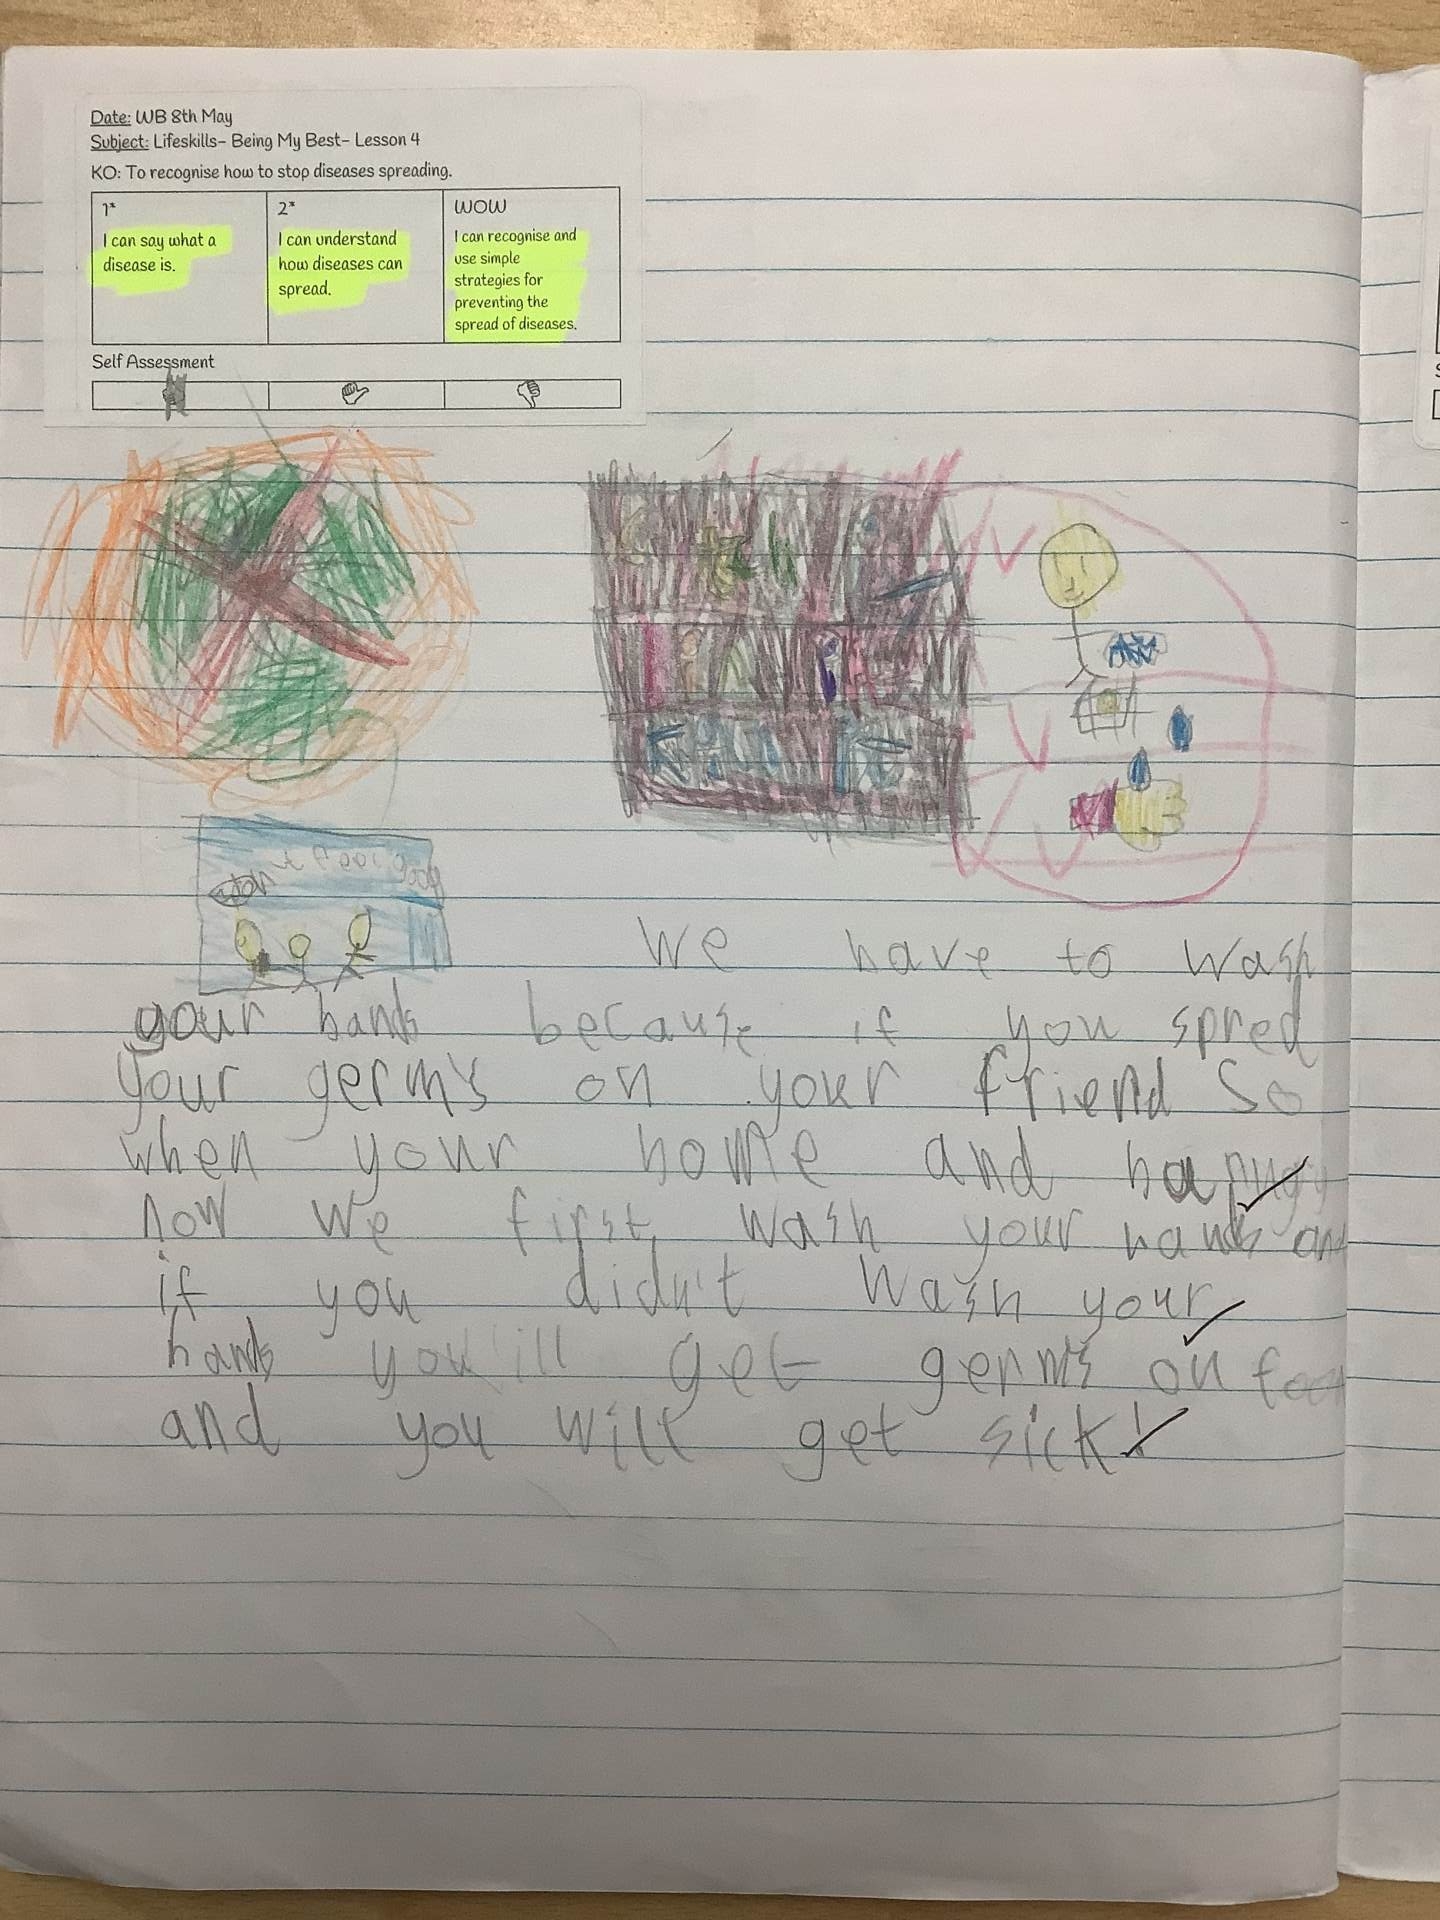 Date: WB 8th May
Subject: Lifeskills- Being My Best- Lesson 4
KO: To recognise how to stop diseases spreading.
1*
I can say what a
disease is.
2*
I can understand
how diseases can
spread.
WOW
I can recognise and
use simple
strategies for
preventing the
spread of diseases.
Self Assessment
feel good
We have to wash
your hands because if you spred
your germ's on your friend so
when your home and
now we first wash your hands and
if you didn't wash your
hands you'ill get germ's on
and you will get sick!